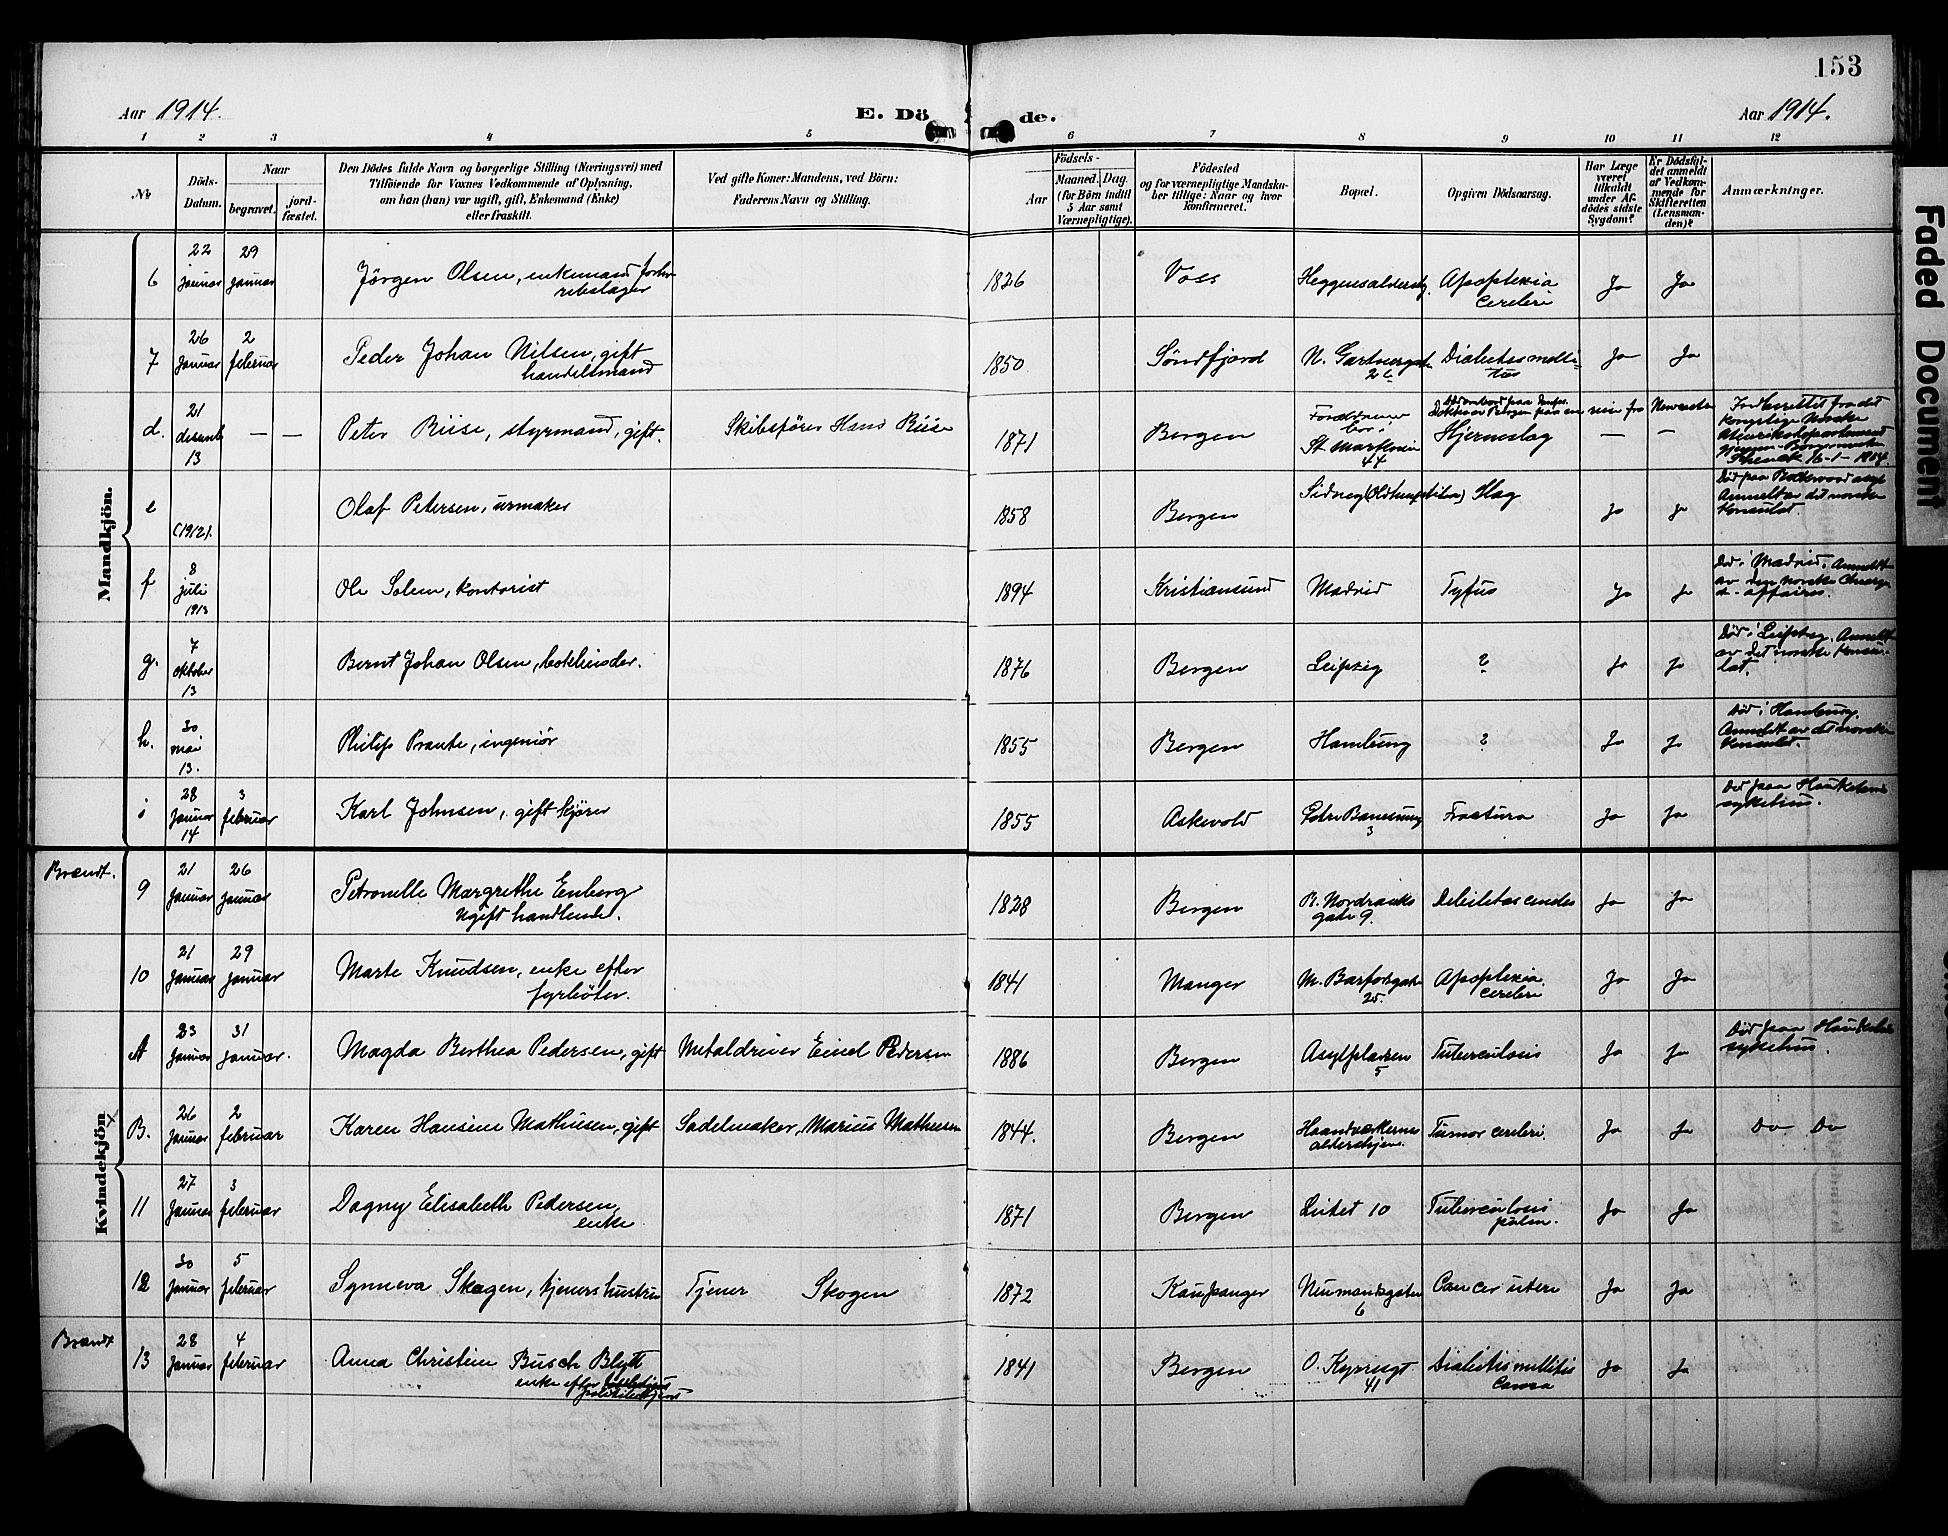 153
Aar 1914.
E. Döde.
Aar 1914.
1 2 3 4 5 6 7 8 9 10 11 12
No
Döds-
Datum.
Naar
begravet.
jord-
fæstet.
Den Dödes fulde Navn og borgerlige Stilling (Næringsvei) med
Tilföiende for Voxnes Vedkommende af Oplysning,
om han (hun) var ugift, gift, Enkemand (Enke)
eller fraskilt.
Ved gifte Koner: Mandens, ved Börn:
Faderens Navn og Stilling.
Aar
Födsels-
Maaned. Dag.
(for Börn indtil
5 Aar samt
Værnepligtige).
Födested
og for værnepligtige Mandska-
ber tillige: Naar og hvor
konfirmeret.
Bopæl.
Opgiven Dödsaarsag.
Har Læge
været
tilkaldt
under Af-
dödes sidste
Sygdom?
Er Dödsfal-
det anmeldt
af Vedkom-
mende for
Skifteretten
(Lensman-
den)?
Anmærkninger.
Mandkjön.
6
22 januar
29 januar
Jørgen Olsen, enkemand
1826
Voss
Apoplexia
cerebri
Ja
Ja
7
26 januar
2 februar
Peder Johan Nilsen, gift
handelsmand
1850
Søndfjord
N. Gartnergt.
Diabetes melli-
tus
Ja
Ja
d.
21
desemb
13
— —
Peter Riise, styrmand, gift.
Skibsfører Hans Riise
1871
Bergen
St. Markevei
44
Hjerneslag
—
—
e
(1912).
Olaf Petersen, urmaker
1858
Bergen
Slag
Ja
Ja
Anmeldt av det norske
konsulat.
f
8
juli
1913
Ole Solem, kontorist
1894
Kristiansund
Madrid
Tyfus
Ja
Ja
Død i Madrid. Anmeldt
av den norske Charge
d'affaires.
g.
7
oktober
13
Bernt Johan Olsen,
1876
Bergen
Leipzig
?
Ja
Ja
Død i Leipzig. Anmeldt
av det norske konsu-
lat.
h.
30
mai
13.
Philip Prante, ingeniør
1855
Bergen
Hamburg
?
Ja
Ja
Død i Hamburg.
Anmeldt av det norske
konsulat.
i
28
januar
14
3
februar
Karl Johnsen, gift kjører
1855
Askevold
3
Fractura
Ja
Ja
Død paa Haukelands
sykehus.
Kvindekjön
Brændt.
9
21 januar
26 januar
Petronelle Margrethe Enberg
ugift handlende.
1828
Bergen
R. Nordraaks
gate 9.
Ja
Ja
10
21 januar
29 januar
Marte Knudsen, enke efter
fyrbøter.
1841
Manger
25.
Apoplexia
cerebri
Ja
Ja
A
23 januar
31 januar.
Magda Berthea Pedersen, gift
Metaldreier Einel Pedersen
1886
Bergen
Asylpladsen
5
Tuberculosis
Ja
Ja
Død paa Haukelands
sykehus.
B.
26 januar
2 februar
Karen Hansine Mathiesen, gift
Sadelmaker, Marius Mathiesen
1844.
Bergen
Haandværkernes
aldershjem.
Tumor cerebri.
Ja
Ja
Do Do
11
27 januar
3 februar
Dagny Elisabeth Pedersen
enke
1871
Bergen
10
Tuberculosis
pulm.
Ja
Ja
12
30 januar
5 februar
Synneva Skogen, tjeners hustru
Tjener Skogen
1872
Kaupanger
Neumandsgaten
6
Cancer uteri
Ja
Ja
Brændt
13
28 januar
4 februar
Anna Christine Busch Blytt
enke efter
1841
Bergen
41
Diabetis mellitis
Coma
Ja
Ja
Faded Document